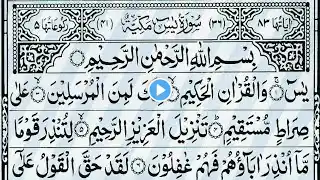 اٰیَاتُهَا ٨٣ (٣٦) سُوْرَةُ یٰسٓ مَكِّیَّةٌ (٤١) رُكُوْعَاتُهَا ٥
بِسْمِ اللهِ الرَّحْمٰنِ الرَّحِیْمِ
یٰسٓ وَالْقُرْاٰنِ الْحَكِیْمِ كَ لَمِنَ الْمُرْسَلِیْنَ عَلٰی
صِرَاطٍ مُّسْتَقِیْمٍ تَنْزِیْلَ الْعَزِیْزِ الرَّحِیْمِ لِتُنْذِرَ قَوْمًا
مَّاۤ اُنْذِرَ اٰبَآؤُهُمْ فَهُمْ غٰفِلُوْنَ لَقَدْ حَقَّ الْقَوْلُ عَلٰۤی